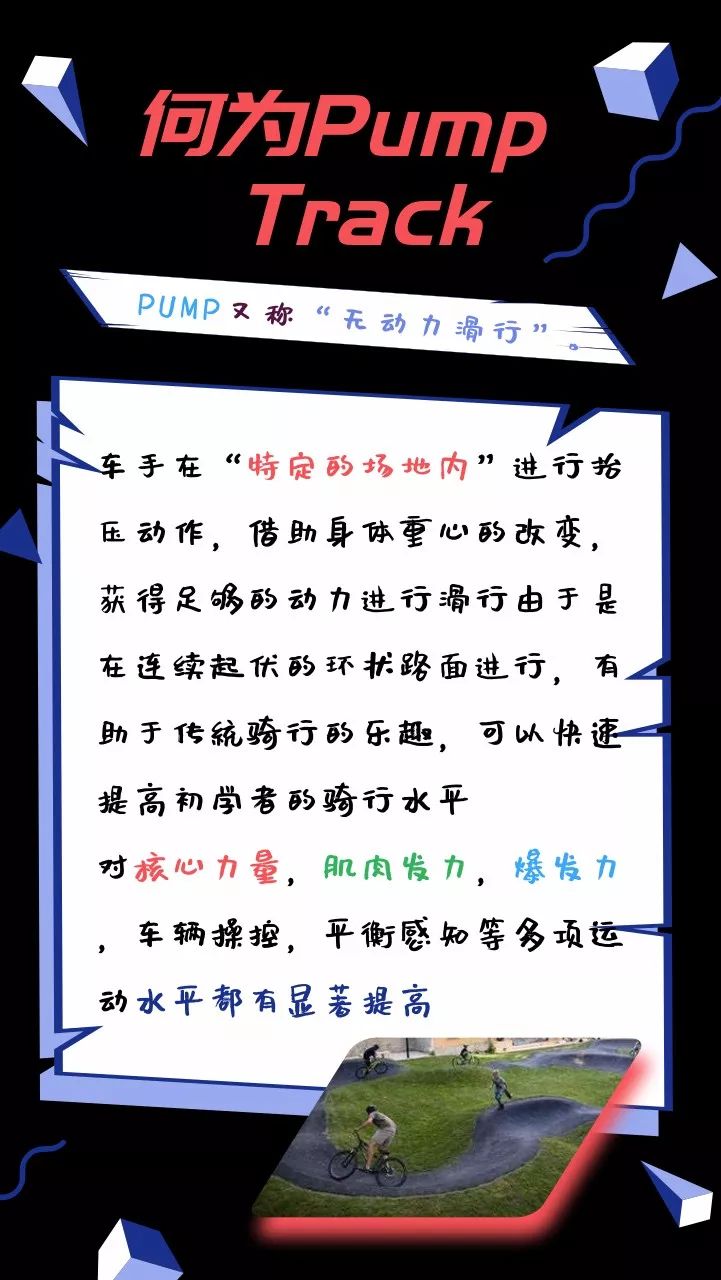 何为Pump
Track
PUMP又称“无动力滑行”。
车手在“特定的场地内”进行抬
压动作，借助身体重心的改变，
获得足够的动力进行滑行由于是
在连续起伏的环状路面进行，有
助于传統骑行的乐趣，可以快速
提高初学者的骑行水平
对核心力量，肌肉发力，爆发力
，车辆操控，平衡感知等多项运
动水平都有显著提高